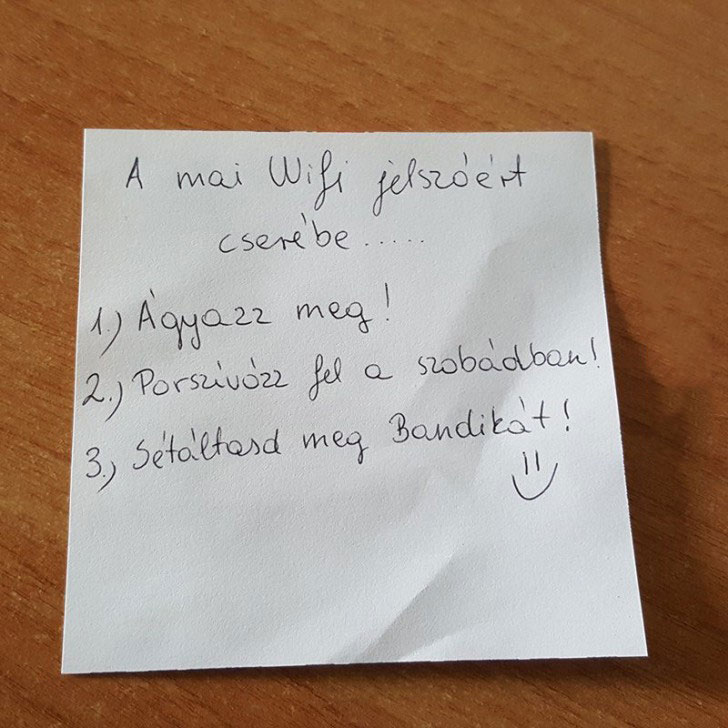 A mai Wifi jelszóért
cserébe.....
1.) Ágyazz meg!
2.) Porszívózz fel a szobádban!
3.) Sétáltasd meg Bandikát!